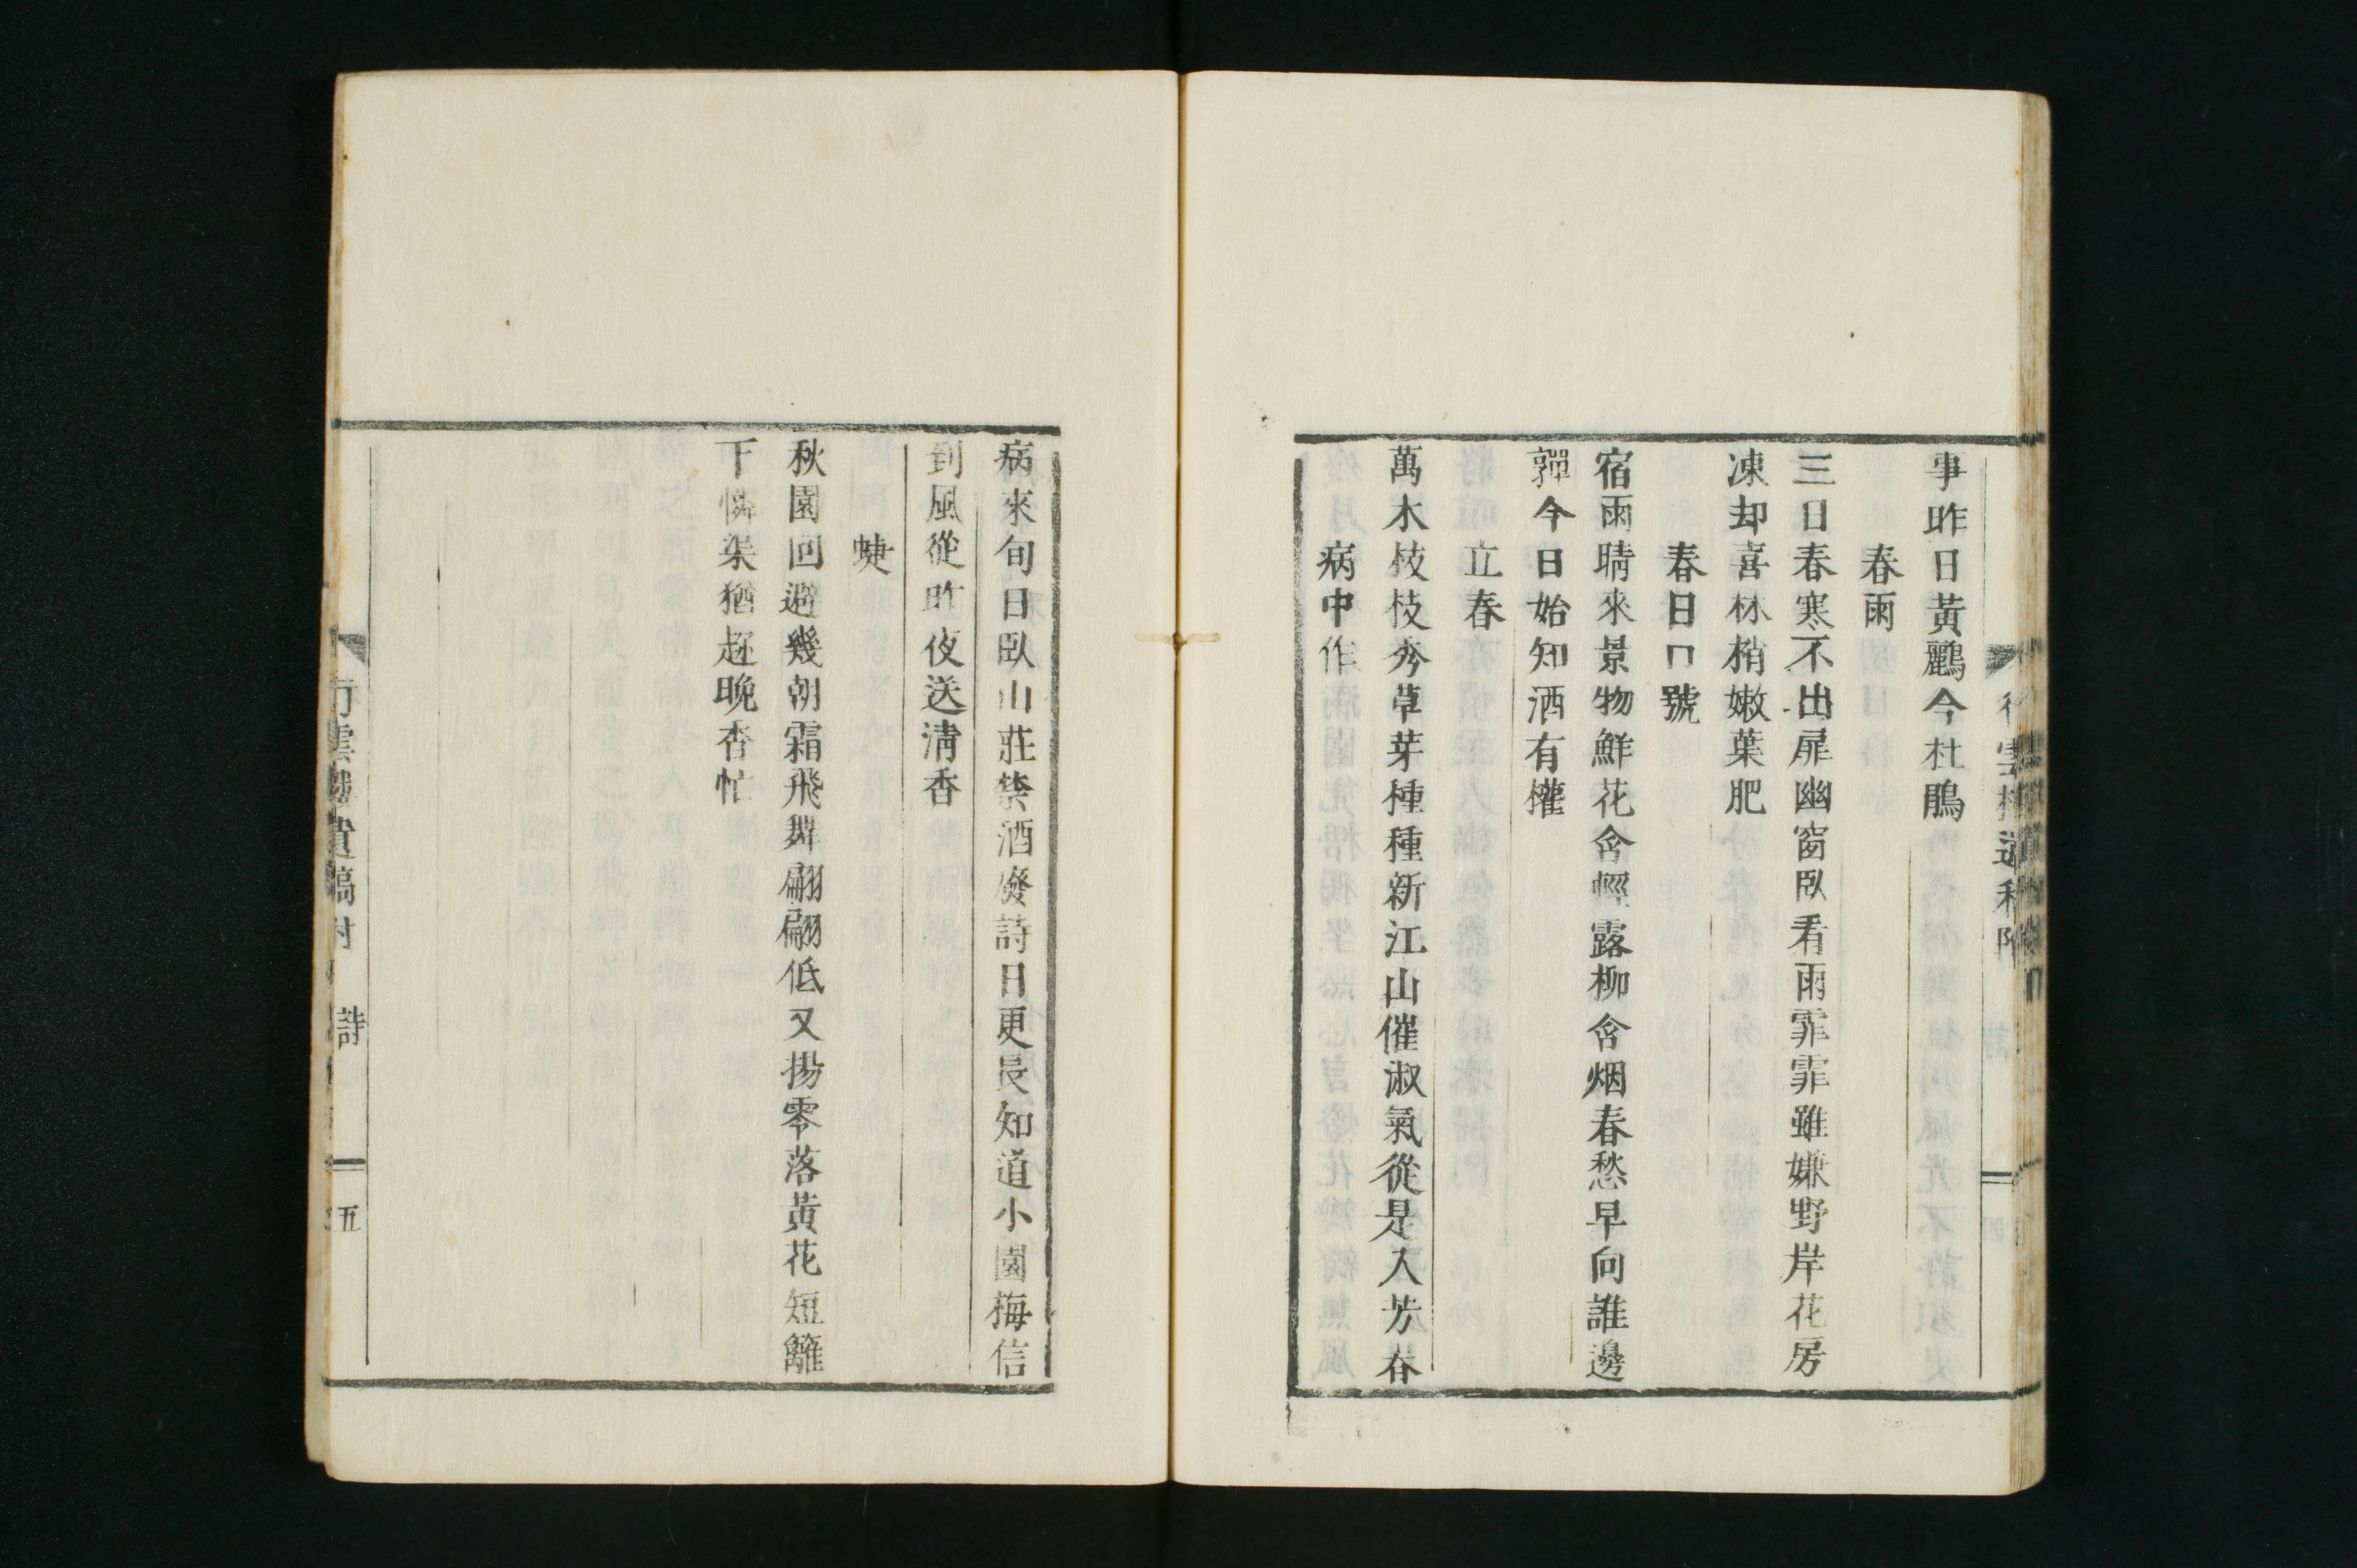 事昨日黃鸝今杜鵑
春雨
三日春寒不出扉幽窗臥看雨霏霏雖嫌野岸花房
凍却喜林梢嫩葉肥
春日口號
宿雨晴來景物鮮花含輕露柳含烟春愁早向誰邊
嚲今日始知酒有權
立春
萬木枝枝秀草芽種種新江山催淑氣從是入芳春
病中作
病來旬日臥山莊禁酒廢詩日更長知道小園梅信
到風從昨夜送淸香
蜨
秋園回避幾朝霜飛舞翩翩低又揚零落黃花短籬
下憐渠猶趂晚香忙
行雲樓遺稿附 詩 五